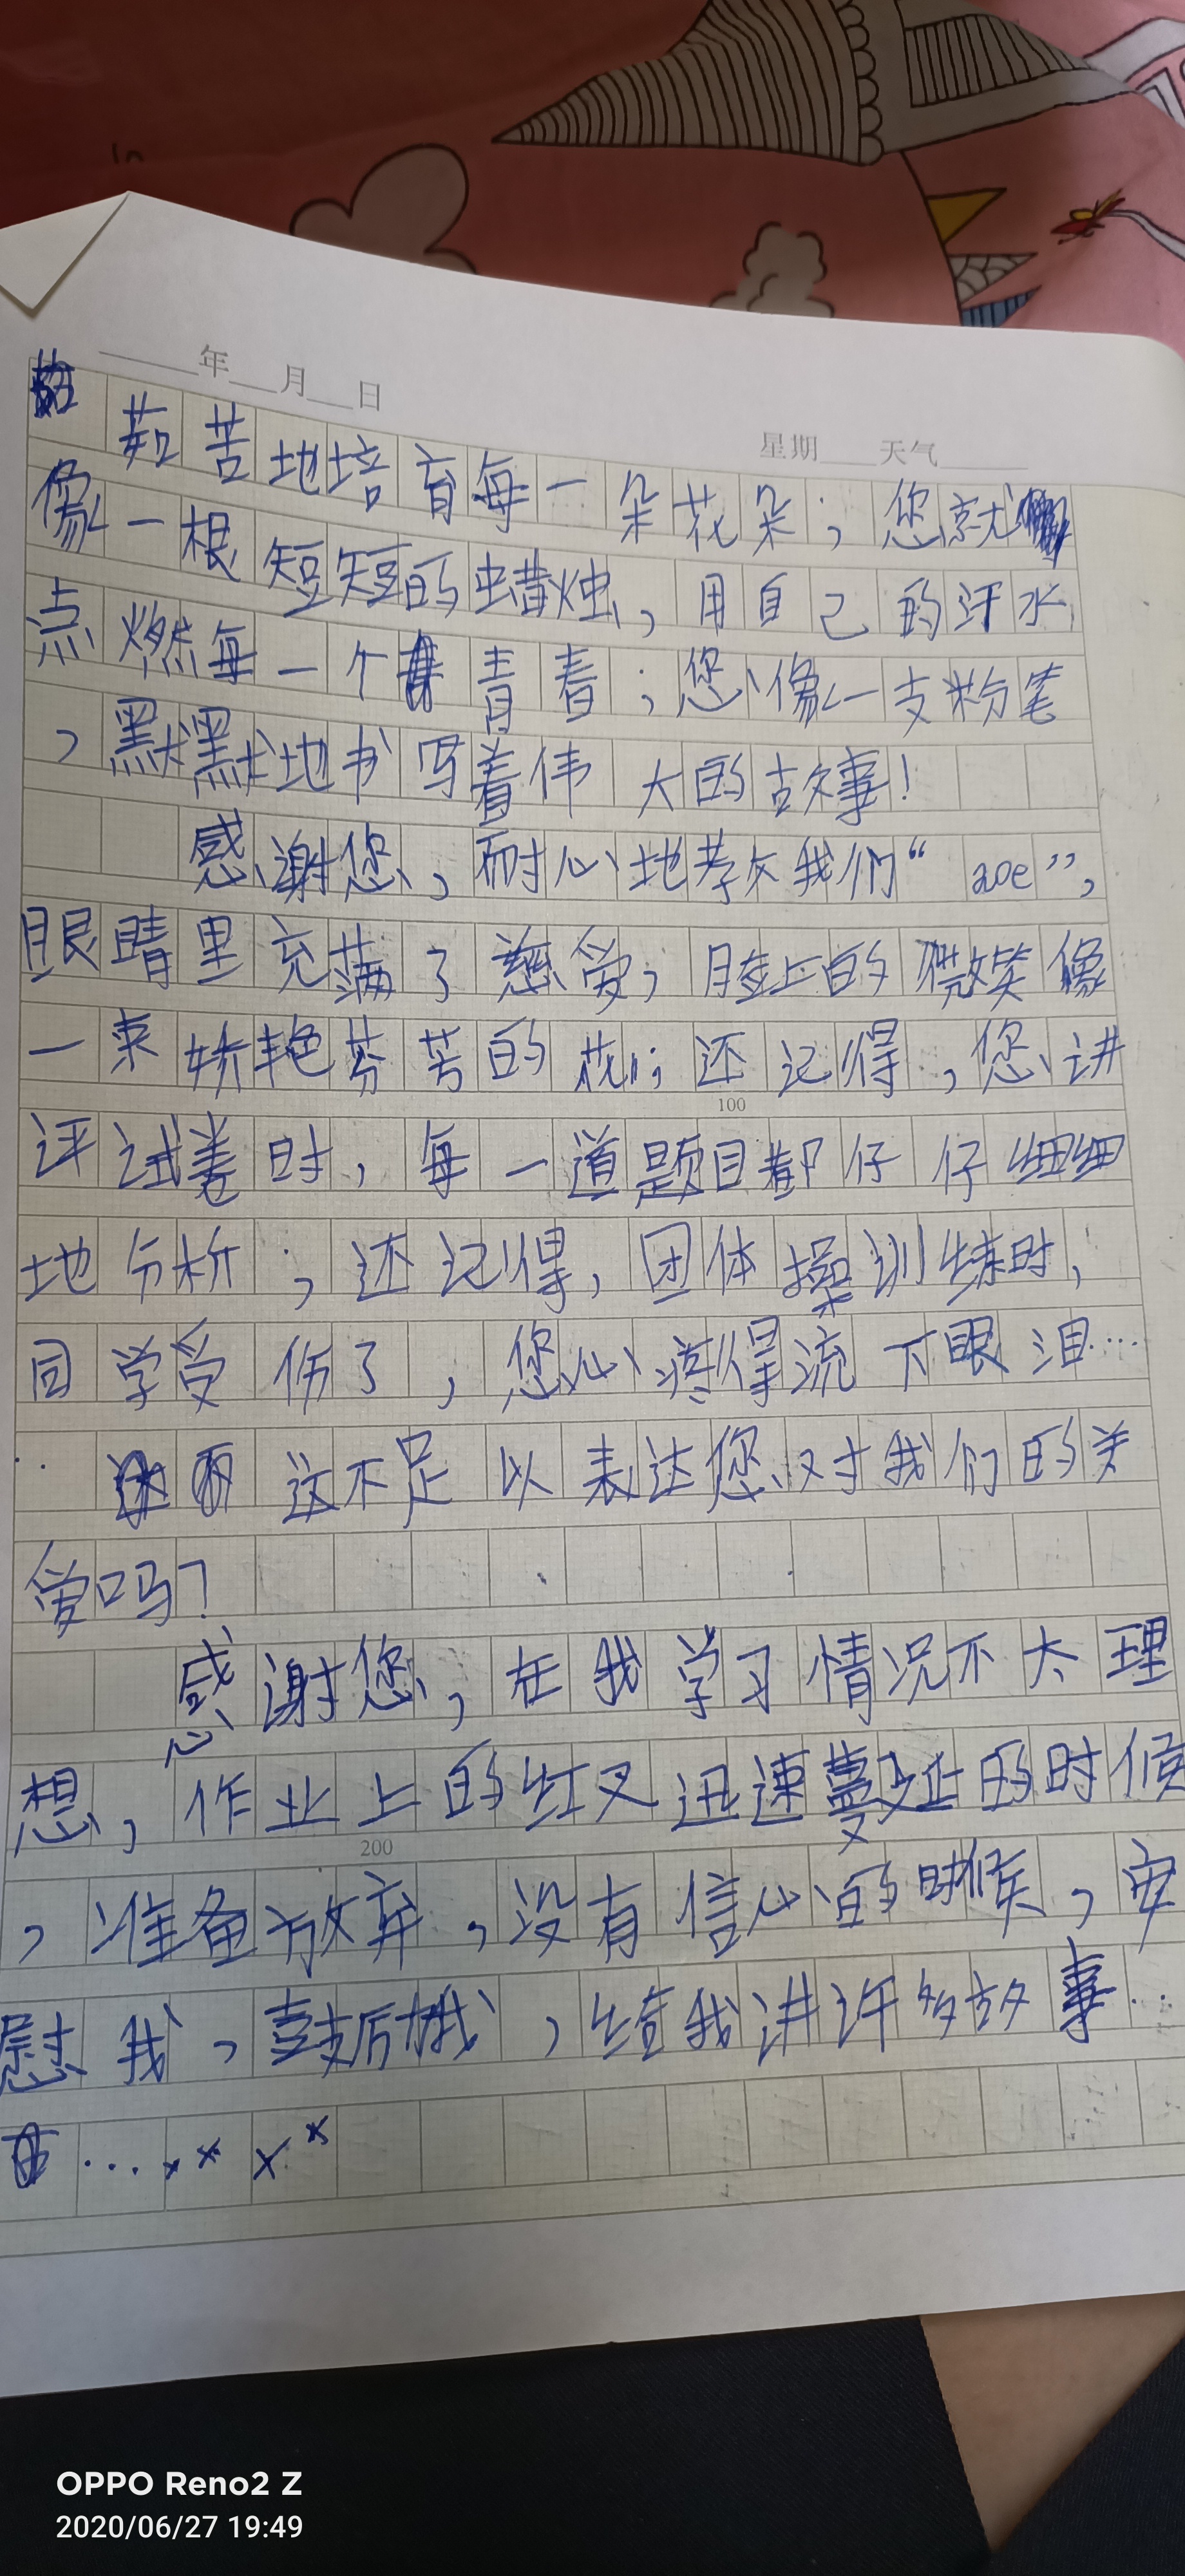 年 月 日
星期 天气
茹苦地培育每一朵花朵；您就
像一根短短的蜡烛，用自己的汗水
点燃每一个青春；您像一支粉笔
，默默地书写着伟大的故事！
感谢您，耐心地教我们“aoe”，
眼睛里充满了慈爱，脸上的微笑像
一束娇艳芬芳的花；还记得，您讲
100
评试卷时，每一道题目都仔仔细细
地分析；还记得，团体操训练时，
同学受伤了，您心疼得流下眼泪…
…这不足以表达您对我们的关
爱吗？
感谢您，在我学习情况不太理
想，作业上的红叉迅速蔓延的时候
200
，准备放弃，没有信心的时候，安
慰我，鼓厉我，给我讲许多故事…
…
OPPO Reno2 Z
2020/06/27 19:49